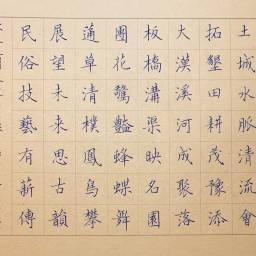 土城水脈清流會
拓墾田耕茂豫添
大漢溪河成聚落
板橋溝渠映名園
團花豔蜂蝶舞
蓪草清樸鳳鳥攀
展望未來思古韻
民俗技藝有薪傳